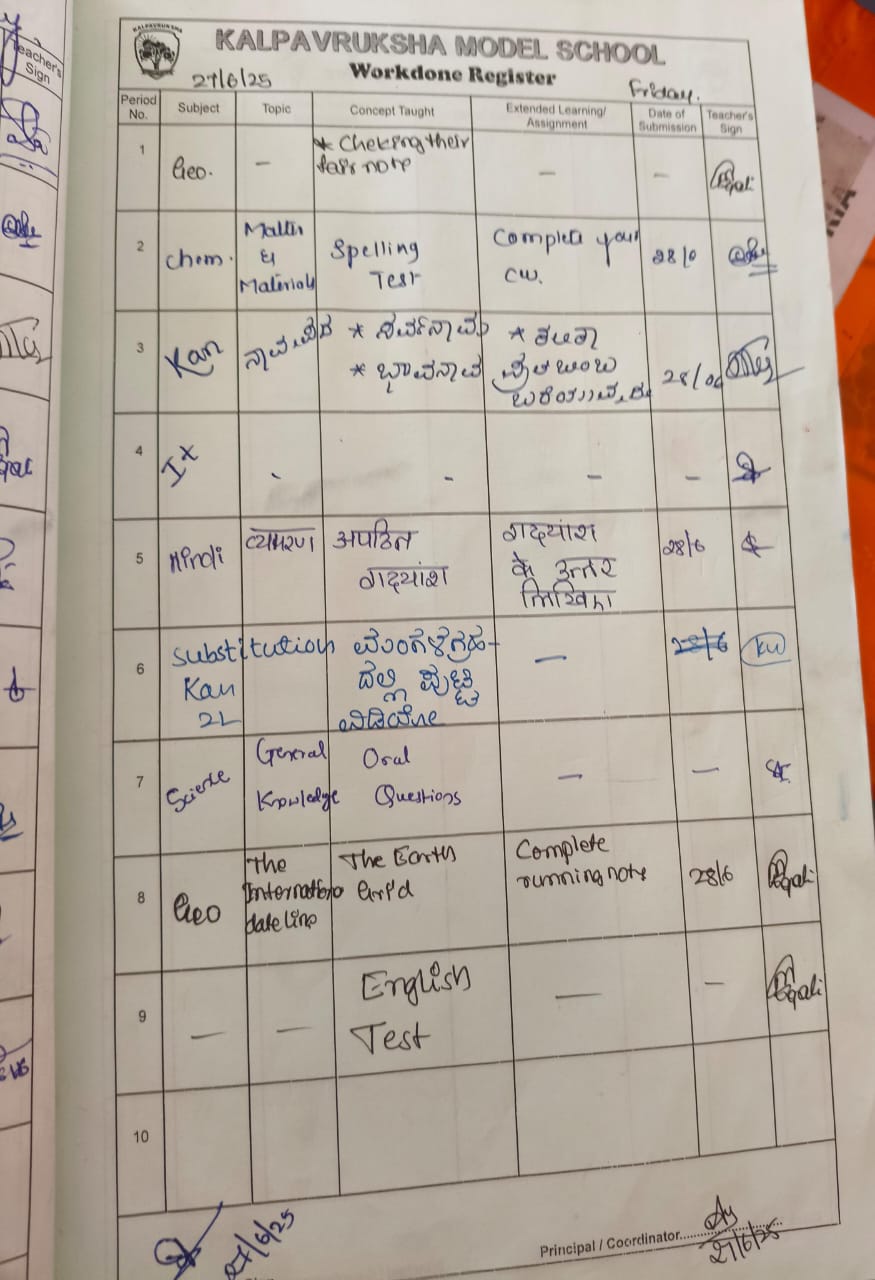 KALPAVRUKSHA
KALPAVRUKSHA MODEL SCHOOL
Workdone Register
27/6/25
Friday.
Teacher's Sign
Period No. Subject Topic Concept Taught Extended Learning/ Assignment Date of Submission Teacher's Sign
1 Geo. – * Cheking their
fair note – –
2 Chem. Matter
& Materials
Spelling
Test
Complete your
CW.
28/0
3 Kan ನಾಮಪದ
* ಸರ್ವನಾಮ
* ಭಾವನಾಮ
* ಕಲಿತಾ
28/06
4 IX - - – –
5 Hindi व्याकरण
अपठित
गद्यांश
गद्यांश
के उत्तर
लिखिए
28/6
6 Substitution
Kan
2L
ದಲ್ಲಿ ಪುಟ್ಟಿ
ವಿಡಿಯೋ
–
28/6
KW
7 Science General
Knowledge
Oral
Questions
– –
8 Geo The
Internatio
date line
The Earth
Grid
Complete
running note
28/6
9 – – English
Test
– –
10
27/6/25
Principal / Coordinator
27/6/25